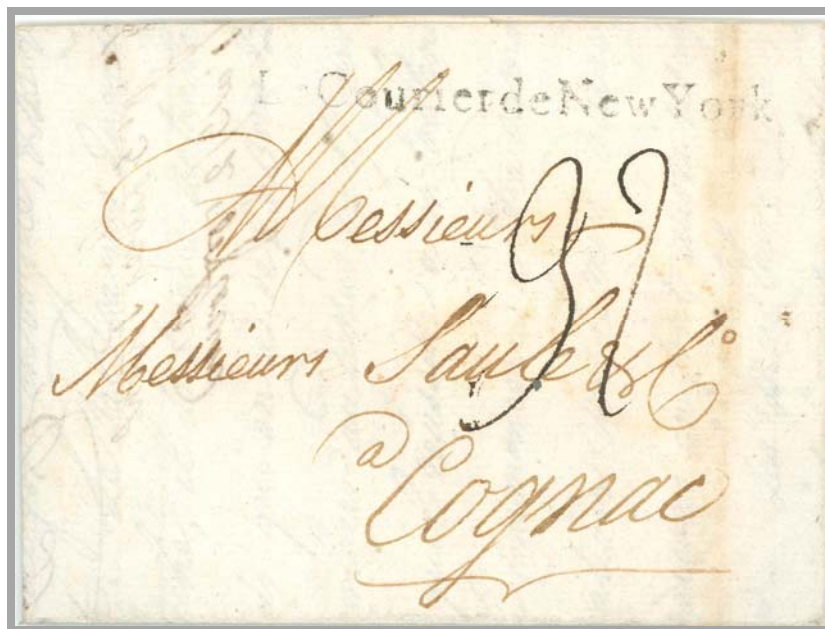 Le Courier de New York
A Messieurs
Messieurs Saule & Cº
a Cognac